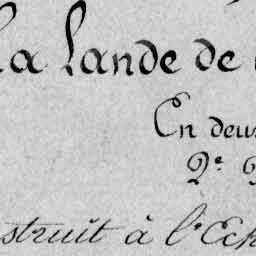 La Lande de
En deux
2e
struit à l'Ech